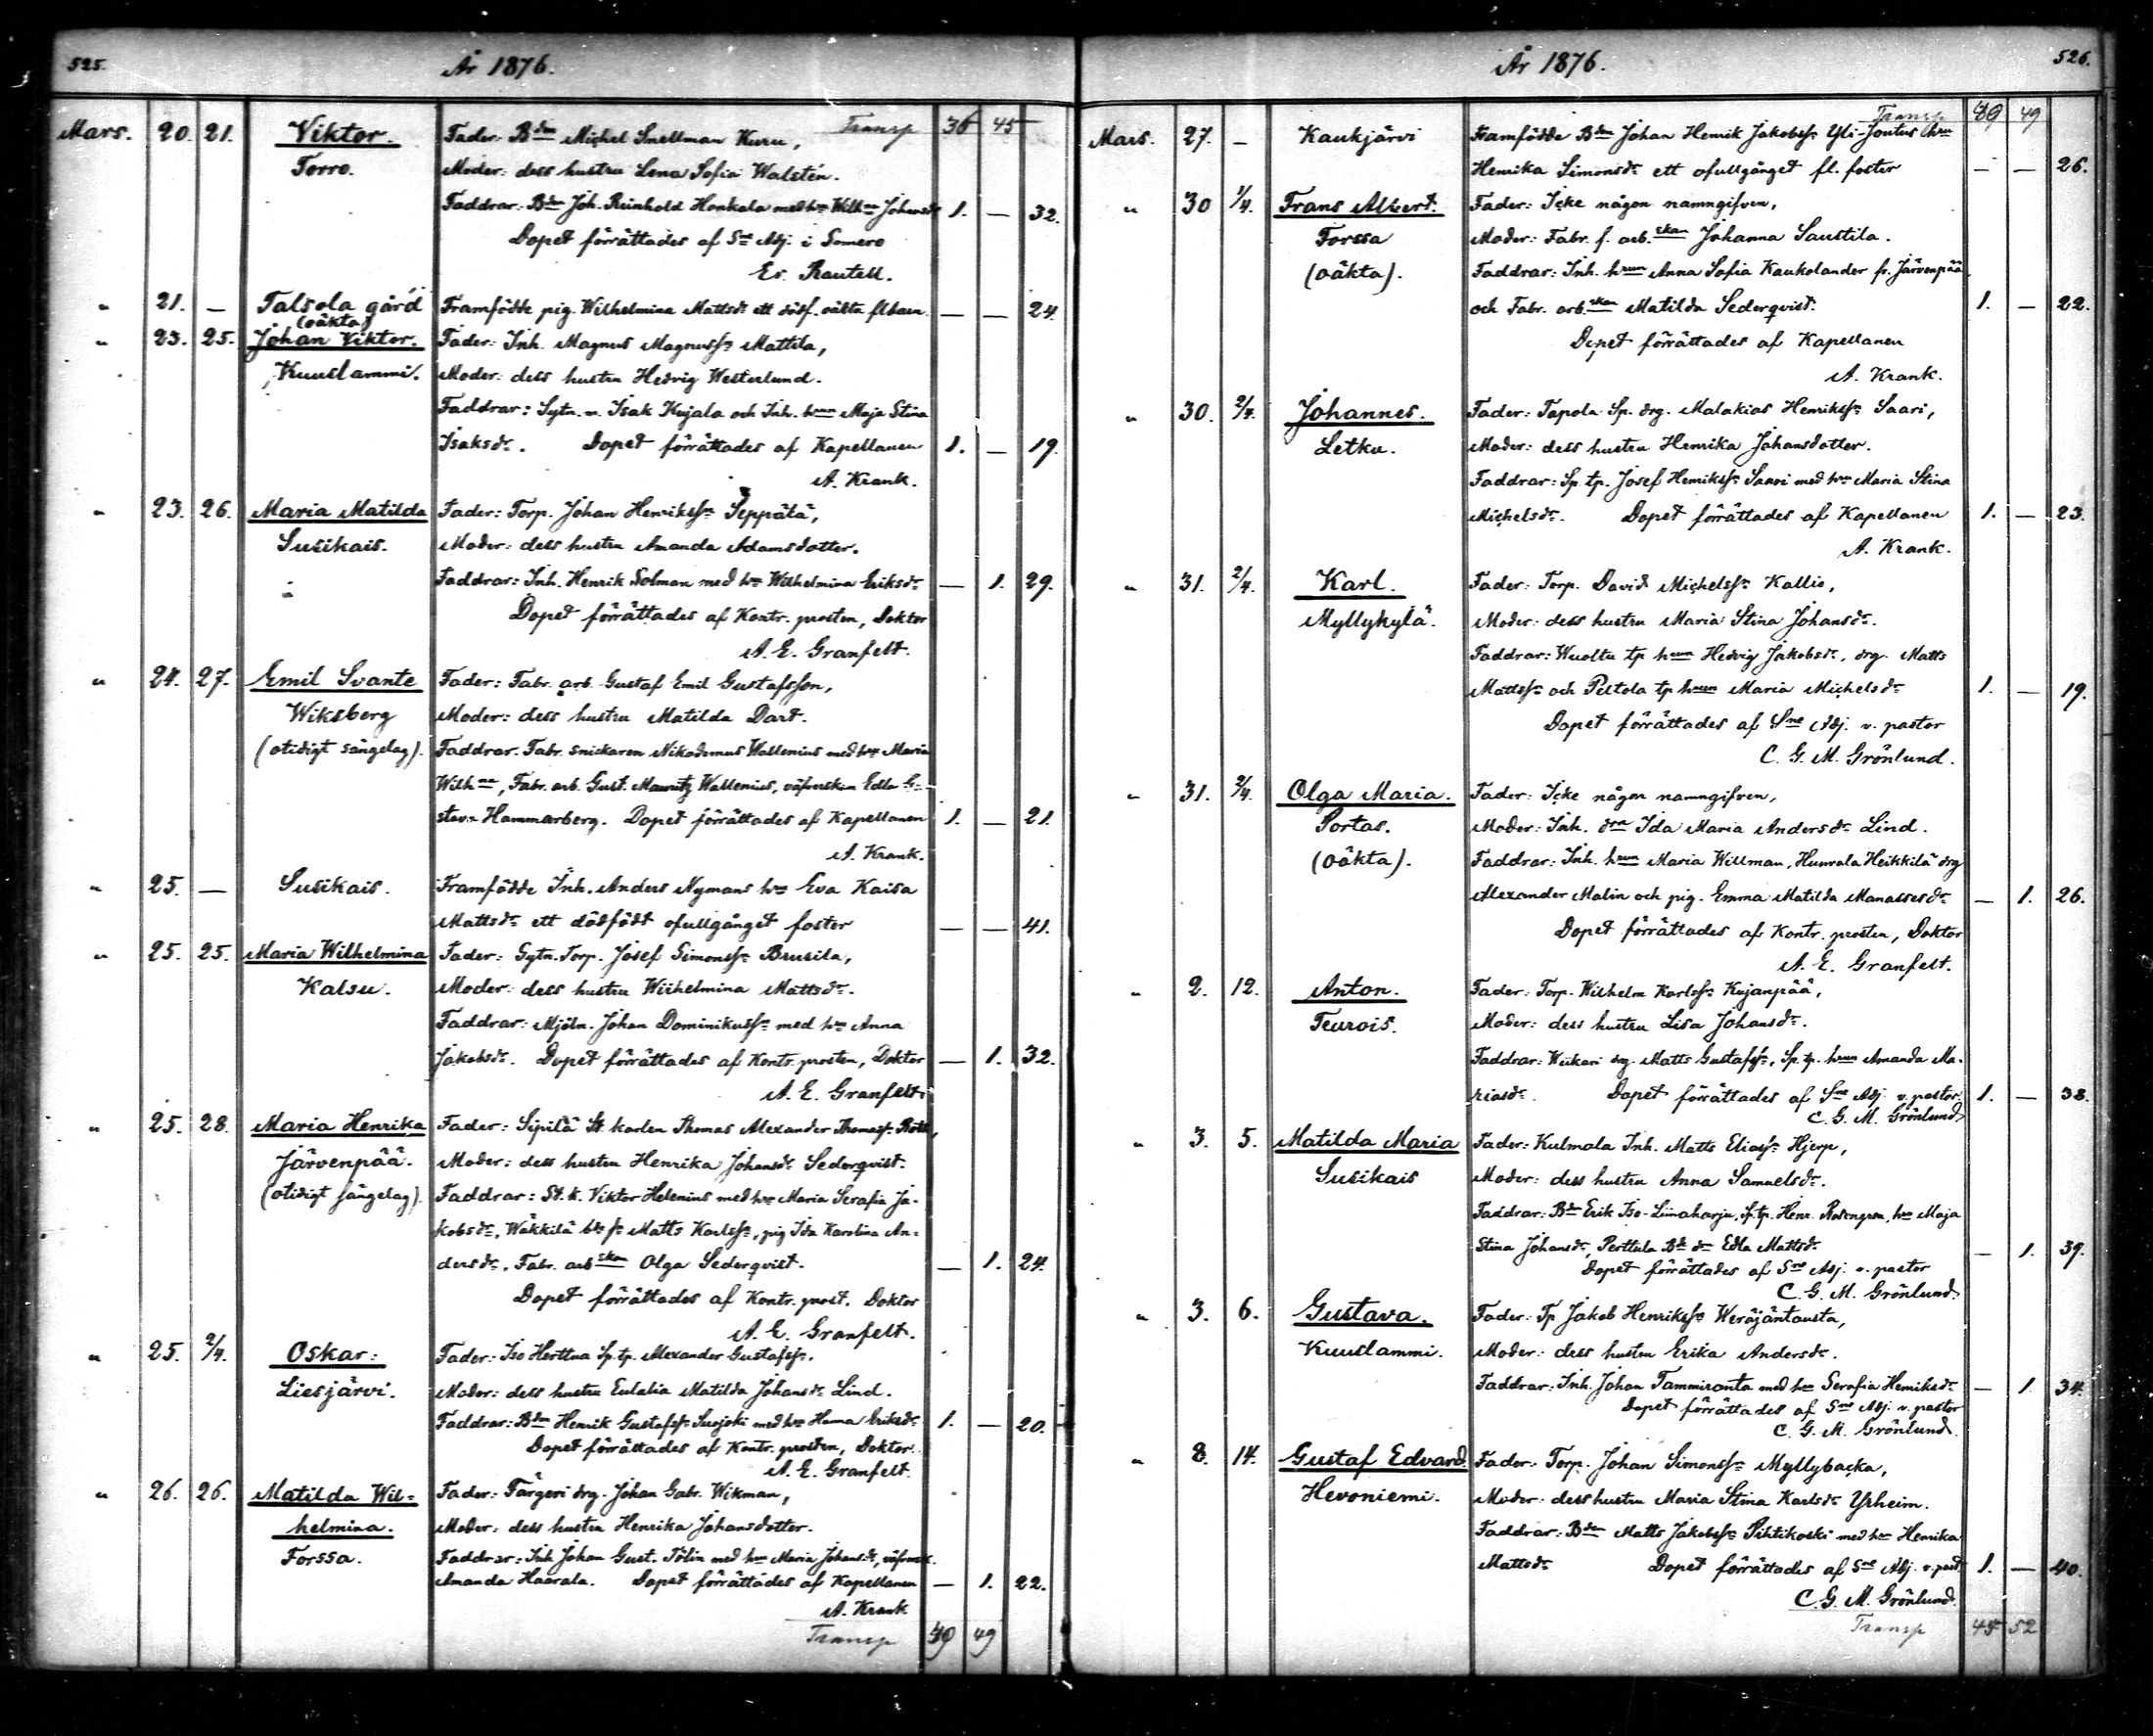 525.
År 1876.
Transp 36 45
Mars. 20. 21. Viktor. Fader: Bdn Michel Snellman Kuru,
Torro. Moder: dess hustru Lena Sofia Walstén.
Faddrar: Bdn Joh. Reinhold Honkala med hu Wilhna Johansdr 1. — 32.
Dopet förrättades af Sne Adj. i Somero
Ev. Rautell.
" 21. — Talsola gård Framfödde pig. Wilhelmina Mattsdr ett dödf. oäkta fl.barn. — — 24.
(oäkta)
" 23. 25. Johan Viktor. Fader: Inh. Magnus Magnusson Mattila,
Kuuslammi. Moder: dess hustru Hedvig Westerlund.
Faddrar: Sytn. m. Isak Kujala och Inh. hrun Maja Stina
Isaksdr. Dopet förrättades af Kapellanen 1. — 19.
A. Krank.
" 23. 26. Maria Matilda Fader: Torp. Johan Henrikssn Seppälä,
Susikais. Moder: dess hustru Amanda Adamsdotter.
Faddrar: Inh. Henrik Solman med hu Wilhelmina Eriksdr — 1. 29.
Dopet förrättades af Kontr. prosten, Doktor
A. E. Granfelt.
" 24. 27. Emil Svante Fader: Fabr. arb. Gustaf Emil Gustafsson,
Wiksberg Moder: dess hustru Matilda Dart.
(otidigt sängelag). Faddrar: Fabr. snickaren Nikodemus Wallenius med hu Maria
Wilhna, Fabr. arb. Gust. Mauritz Wallenius, väfverskan Edla G-
stava Hammarberg. Dopet förrättades af Kapellanen 1. — 21.
A. Krank.
" 25. — Susikais. Framfödde Inh. Anders Nymans hu Eva Kaisa
Mattsdr ett dödfödt ofullgånget foster — — 41.
" 25. 25. Maria Wilhelmina Fader: Sytn. Torp. Josef Simonssn Brusila,
Kalsu. Moder: dess hustru Wilhelmina Mattsdr.
Faddrar: Mjöln. Johan Dominikussn med hu Anna
Jakobsdr. Dopet förrättades af Kontr. prosten, Doktor — 1. 32.
A. E. Granfelt.
" 25. 28. Maria Henrika Fader: Sipilä St. karlen Thomas Alexander Thomassn Roth,
Järvenpää. Moder: dess hustru Henrika Johansdr Sederqvist.
(otidigt sängelag). Faddrar: St. k. Viktor Helenius med hu Maria Serafia Ja-
kobsdr, Wäkkilä bds sn Matts Karlssn, pig Ida Karolina An-
dersdr, Fabr. arbskan Olga Sederqvist. — 1. 24.
Dopet förrättades af Kontr. prost. Doktor
A. E. Granfelt.
" 25. 2/4. Oskar: Fader: Iso Herttua Sp. tp. Alexander Gustafssn.
Liesjärvi. Moder: dess hustru Eulalia Matilda Johansdr Lind.
Faddrar: Bdn Henrik Gustafssn Susjoki med hu Hanna Eriksdr 1. — 20.
Dopet förrättades af Kontr. prosten, Doktor
A. E. Granfelt.
" 26. 26. Matilda Wil- Fader: Färgeri drg. Johan Gabr. Wikman,
helmina. Moder: dess hustru Henrika Johansdotter.
Forssa. Faddrar: Inh Johan Gust. Tölin med hu Maria Johansdr, väfversk.
Amanda Haarala. Dopet förrättades af Kapellanen — 1. 22.
A. Krank
Transp 40 49
526.
År 1876.
Transp 40 49
Mars. 27. — Kaukjärvi Framfödde Bdn Johan Henrik Jakobssn Yli-Joutus hru
Henrika Simonsdr ett ofullgånget fl. foster — — 26.
" 30 1/4. Frans Albert. Fader: Icke någon namngifven,
Forssa Moder: Fabr. f. arb.skan Johanna Saustila.
(oäkta). Faddrar: Inh. hrun Anna Sofia Kaukolander fr. Järvenpää
och Fabr. arb.skan Matilda Sederqvist. 1. — 22.
Dopet förrättades af Kapellanen
A. Krank.
" 30. 2/4. Johannes. Fader: Tapola Sp. drg. Malakias Henrikssn Saari,
Letku. Moder: dess hustru Henrika Johansdotter.
Faddrar: Sp. tp. Josef Henrikssn Saari med hru Maria Stina
Michelsdr. Dopet förrättades af Kapellanen 1. — 23.
A. Krank.
" 31. 2/4. Karl. Fader: Torp. David Michelssn Kallio,
Myllykylä. Moder: dess hustru Maria Stina Johansdr.
Faddrar: Wuoltu tp hrun Hedvig Jakobsdr, drg. Matts
Mattssn och Peltola tp hrun Maria Michelsdr 1. — 19.
Dopet förrättades af Sne Adj. v. pastor
C. G. M. Grönlund.
" 31. 2/4. Olga Maria. Fader: Icke någon namngifven,
Portas. Moder: Inh. drn Ida Maria Andersdr Lind.
(oäkta). Faddrar: Inh. hrun Maria Willman, Hunrala Heikkilä drg
Alexander Malin och pig. Emma Matilda Manassesdr — 1. 26.
Dopet förrättades af Kontr. prosten, Doktor
A. E. Granfelt.
" 2. 12. Anton. Fader: Torp. Wilhelm Karlssn Kujanpää,
Teurois. Moder: dess hustru Lisa Johansdr.
Faddrar: Wiikari drg. Matts Gustafssn, Sp. tp. hrun Amanda Ma-
riasdr. Dopet förrättades af Sne Adj. v. pastor 1. — 38.
C. G. M. Grönlund
" 3. 5. Matilda Maria Fader: Kulmala Inh. Matts Eliassn Hjerp,
Susikais Moder: dess hustru Anna Samuelsdr.
Faddrar: Bdn Erik Iso-Liinaharju, Sp. tp. Henr. Rosengren, hru Maja
Stina Johansdr, Perttula Bds dr Edla Mattsdr. — 1. 39.
Dopet förrättades af Sne Adj. v. pastor
C. G. M. Grönlund.
" 3. 6. Gustava. Fader: Tp Jakob Henrikssn Weräjäntausta,
Kuuslammi. Moder: dess hustru Erika Andersdr.
Faddrar: Inh. Johan Tammiranta med hru Serafia Henriksdr — 1 34.
Dopet förrättades af Sne Adj. v. pastor
C. G. M. Grönlund.
" 8. 14. Gustaf Edvard. Fader: Torp. Johan Simonssn Myllybacka,
Hevoniemi. Moder: dess hustru Maria Stina Karlsdr Yrheim.
Faddrar: Bdn Matts Jakobssn Pihtikoski med hru Henrika
Mattsdr Dopet förrättades af Sne Adj. v. past. 1. — 40.
C. G. M. Grönlund.
Transp 45 52